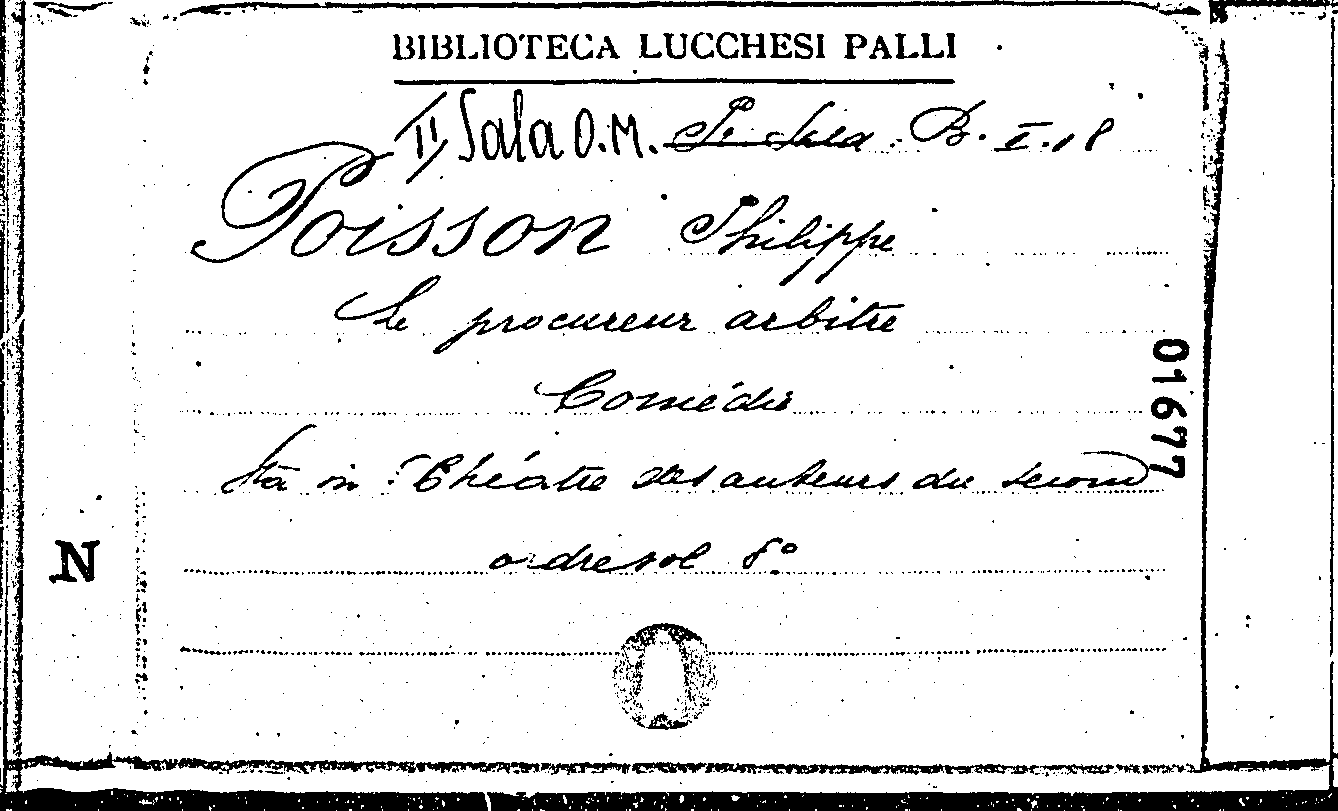 BIBLIOTECA LUCCHESI PALLI
II Sala O.M. Pr. Sala B. I. 18
Poisson Philippe
Le procureur arbitre
Comédie
Sta in: Théatre des auteurs du second
ordre vol 8°
01677
N